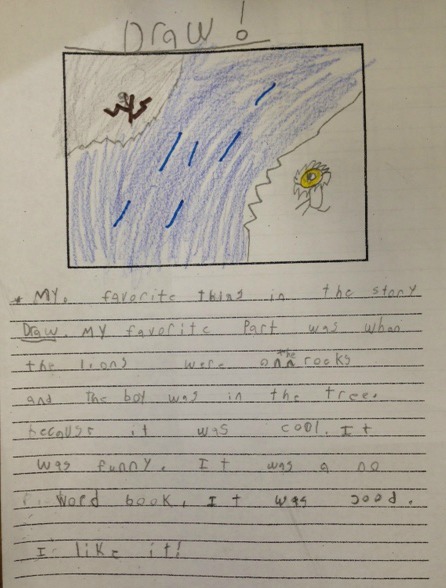 Draw!
* My, favorite thing in the story
Draw. My favorite Part was when
the lions were on the rocks
and The boy was in the tree.
because it was cool. It
was funny. It was a no
word book. It was good.
I like it!